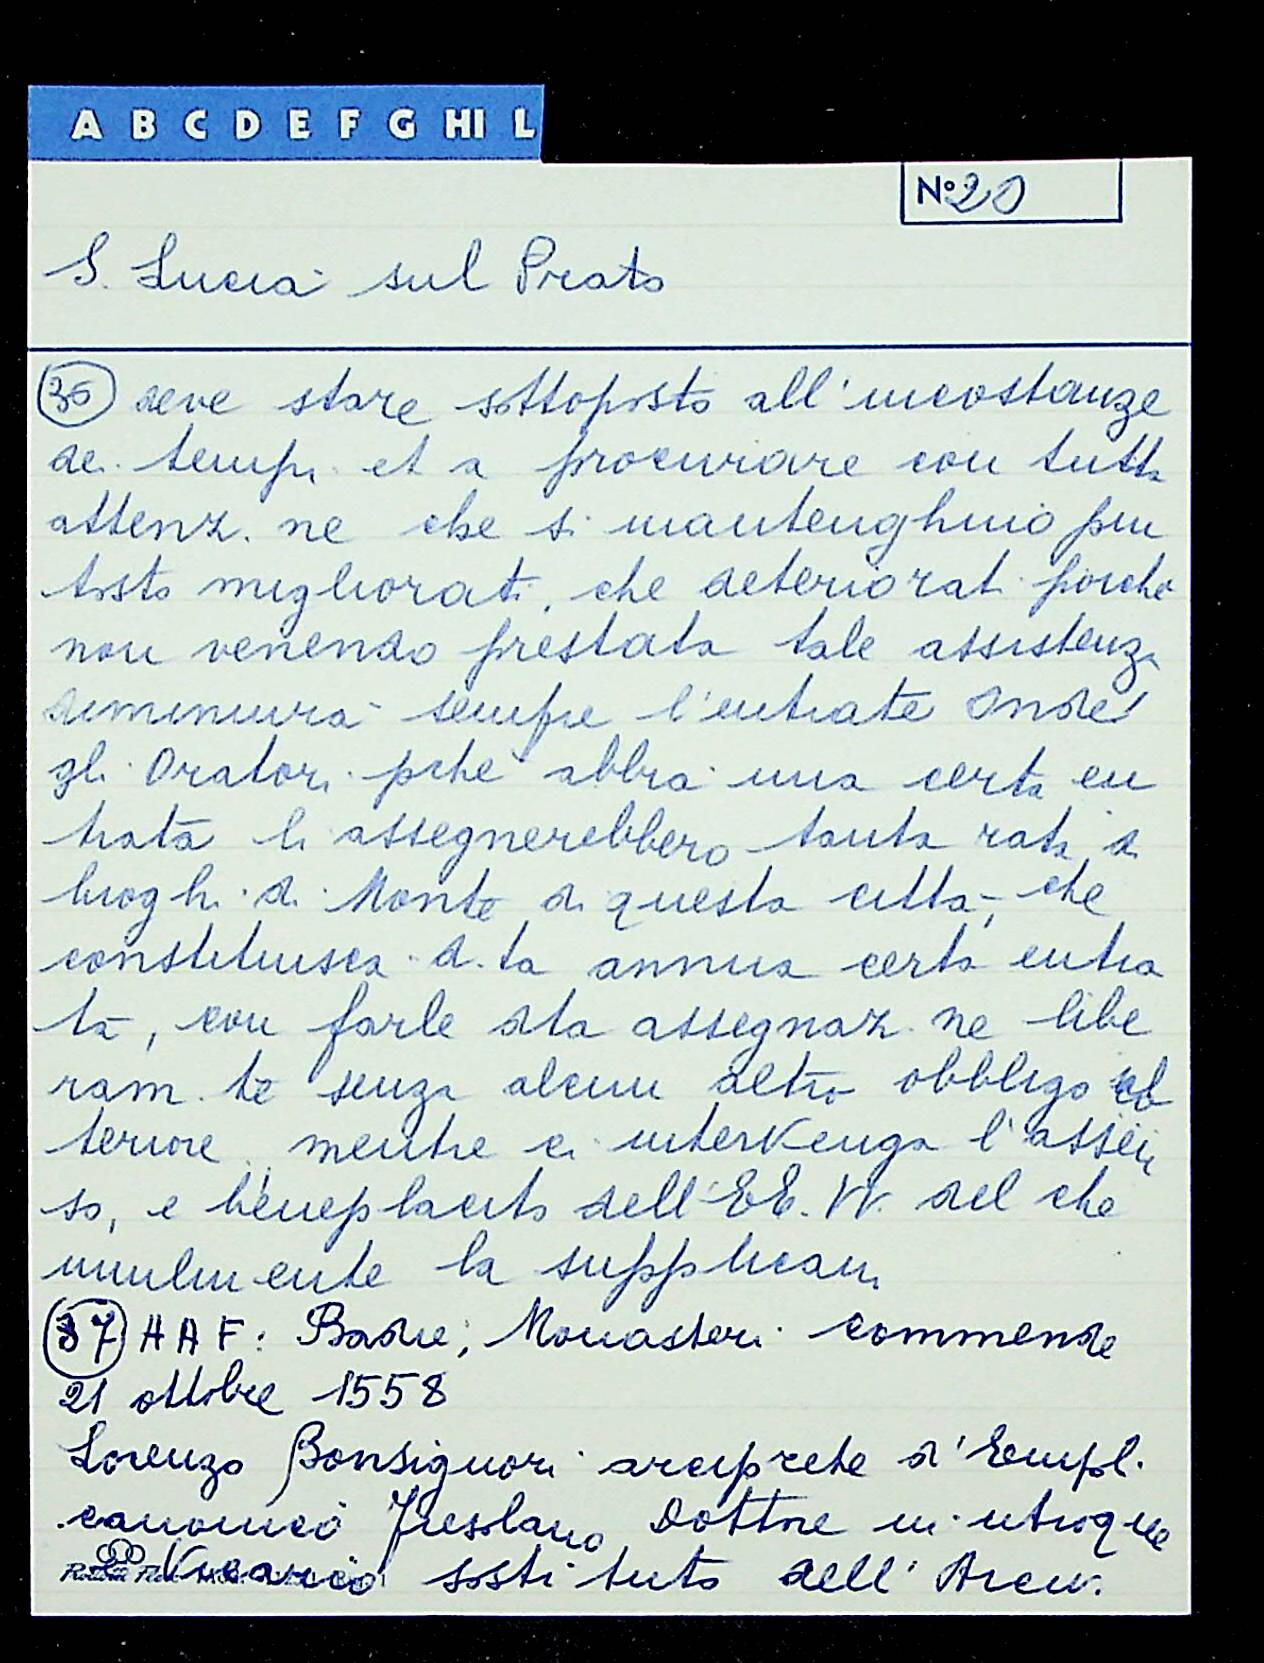 A B C D E F G HI L
N° 20
S. Lucia sul Prato
36 deve stare sottoposto all'incostanze
dei tempi et a procurare con tutta
attenz.ne che si mantenghino piu
tosto migliorati, che deteriorati poiche
non venendo prestata tale assistenza
diminuira sempre l'entrate Onde
gli Oratori pche abbia una certa en
trata li assegnerebbero tanta rata di
luoghi di Monte di questa citta, che
constituisca d.ta annua certa entra
ta, con farle dta assegnaz.ne libe
ram.te senza alcun altro obbligo ul
teriore mentre ci intervenga l'assen
so, e beneplacito dell'EE. VV. del che
umilmente la supplicano
37 HAF: Badie, Monasteri commende
21 ottobre 1558
Lorenzo Bonsignori arciprete d'Empoli
canonico Fiesolano Dottore in utroque
Vicario sostituto dell'Arciv.